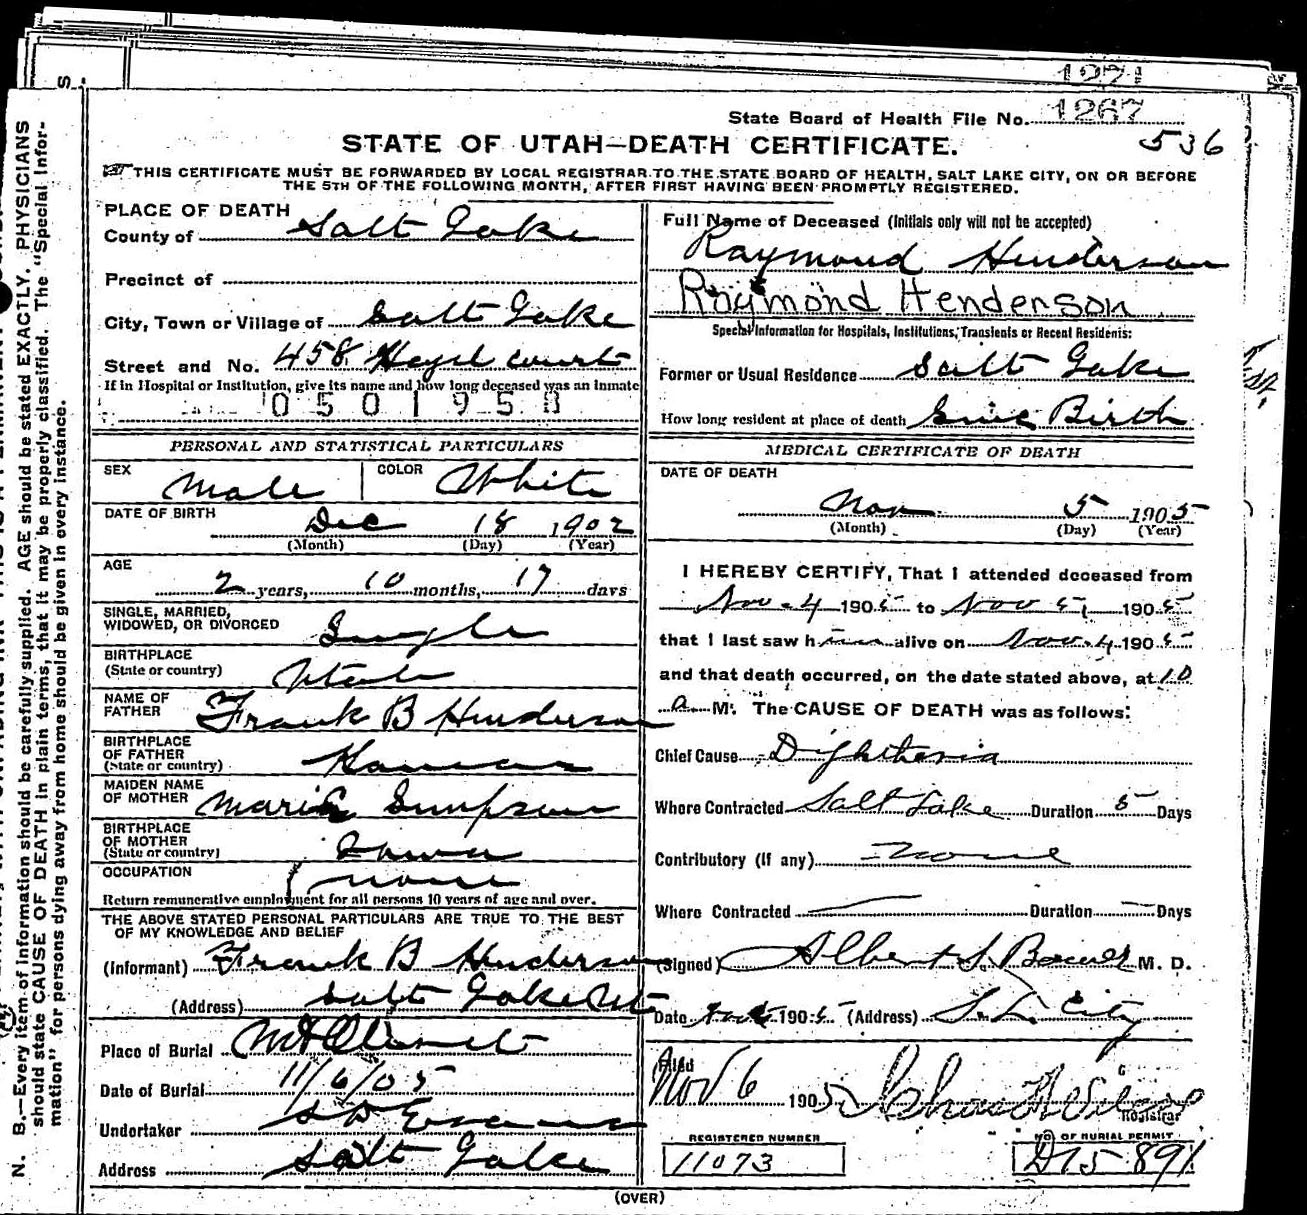 1271
State Board of Health File No. 1267
536
STATE OF UTAH—DEATH CERTIFICATE.
THIS CERTIFICATE MUST BE FORWARDED BY LOCAL REGISTRAR TO THE STATE BOARD OF HEALTH, SALT LAKE CITY, ON OR BEFORE
THE 5TH OF THE FOLLOWING MONTH, AFTER FIRST HAVING BEEN PROMPTLY REGISTERED.
PLACE OF DEATH
County of Salt Lake
Precinct of
City, Town or Village of Salt Lake
Street and No. 458 court
If in Hospital or Institution, give its name and how long deceased was an inmate
0501958
PERSONAL AND STATISTICAL PARTICULARS
SEX Male COLOR White
DATE OF BIRTH
Dec 18 1902
(Month) (Day) (Year)
AGE
2 years, 10 months, 17 days
SINGLE, MARRIED,
WIDOWED, OR DIVORCED Single
BIRTHPLACE
(State or country) Utah
NAME OF
FATHER Frank B Henderson
BIRTHPLACE
OF FATHER
(State or country) Kansas
MAIDEN NAME
OF MOTHER Simpson
BIRTHPLACE
OF MOTHER
(State or country) Iowa
OCCUPATION none
Return remunerative employment for all persons 10 years of age and over.
THE ABOVE STATED PERSONAL PARTICULARS ARE TRUE TO THE BEST
OF MY KNOWLEDGE AND BELIEF
(Informant) Frank B Henderson
(Address) Salt Lake Ut
Place of Burial Mt Olivet
Date of Burial 11/6/05
Undertaker S D Evans
Address Salt Lake
Full Name of Deceased (Initials only will not be accepted)
Raymond Henderson
Raymond Henderson
Special Information for Hospitals, Institutions, Transients or Recent Residents:
Former or Usual Residence Salt Lake
How long resident at place of death Since Birth
MEDICAL CERTIFICATE OF DEATH
DATE OF DEATH
Nov 5 1905
(Month) (Day) (Year)
I HEREBY CERTIFY, That I attended deceased from
Nov. 4 1905 to Nov 5, 1905
that I last saw him alive on Nov. 4 1905
and that death occurred, on the date stated above, at 10
a M. The CAUSE OF DEATH was as follows:
Chief Cause Diphtheria
Where Contracted Salt Lake Duration 5 Days
Contributory (If any) none
Where Contracted — Duration — Days
(Signed) Albert S. M. D.
Date 1905 (Address) S. L. City
Filed
Nov 6 1905
Registrar
REGISTERED NUMBER
11073
NO. OF BURIAL PERMIT
D15891
(OVER)
N. B.—Every item of information should be carefully supplied. AGE should be stated EXACTLY. PHYSICIANS
should state CAUSE OF DEATH in plain terms, that it may be properly classified. The "Special Infor-
mation" for persons dying away from home should be given in every instance.